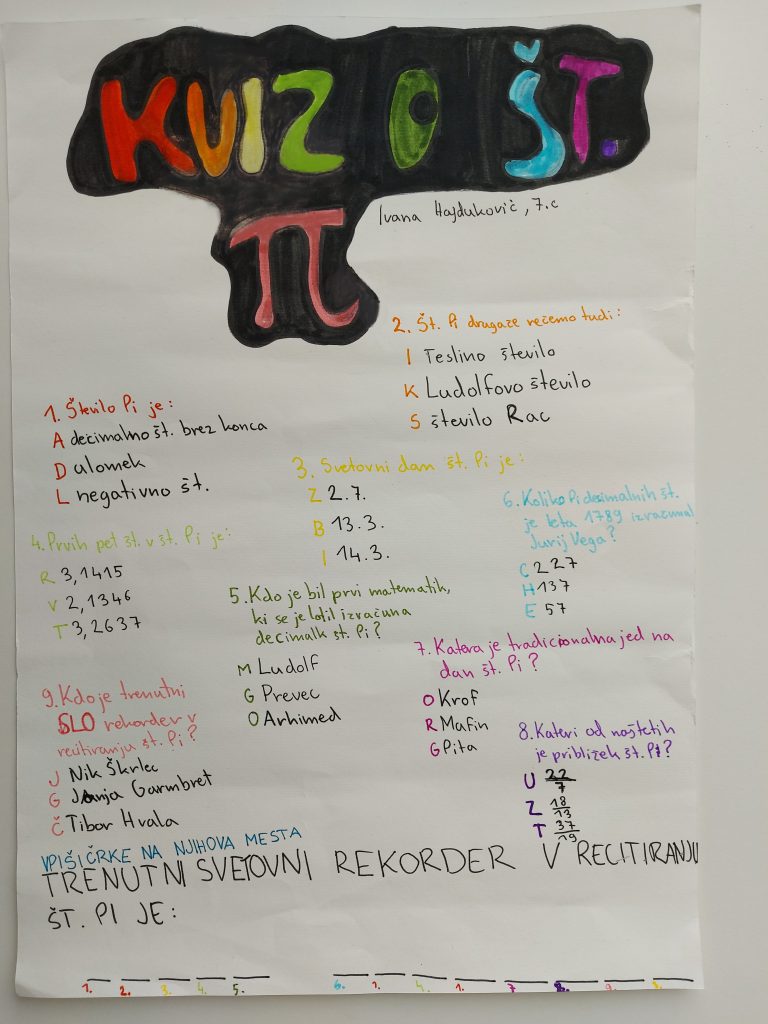 KVIZ O ŠT.
π
Ivana Hajduković, 7.c
1. Število Pi je:
A decimalno št. brez konca
D ulomek
L negativno št.
2. Št. Pi drugače rečemo tudi:
I Teslino število
K Ludolfovo število
S število Rac
3. Svetovni dan št. Pi je:
Z 2.7.
B 13.3.
I 14.3.
4. Prvih pet št. v št. Pi je:
R 3,1415
V 2,1346
T 3,2637
5. Kdo je bil prvi matematik,
ki se je lotil izračuna
decimalk št. Pi?
M Ludolf
G Prevec
O Arhimed
6. Koliko Pi decimalnih št.
je leta 1789 izračunal
Jurij Vega?
C 227
H 137
E 57
7. Katera je tradicionalna jed na
dan št. Pi?
O Krof
R Mafin
G Pita
8. Kateri od naštetih
je približek št. Pi?
U 22/7
Z 18/13
T 37/19
9. Kdo je trenutni
SLO rekorder v
recitiranju št. Pi?
J Nik Škrlec
G Janja Garmbret
Č Tibor Hvala
VPIŠI ČRKE NA NJIHOVA MESTA
TRENUTNI SVETOVNI REKORDER V RECITIRANJU
ŠT. PI JE:
1. 2. 3. 4. 5. 6. 1. 4. 1. 7. 8. 9. 3.